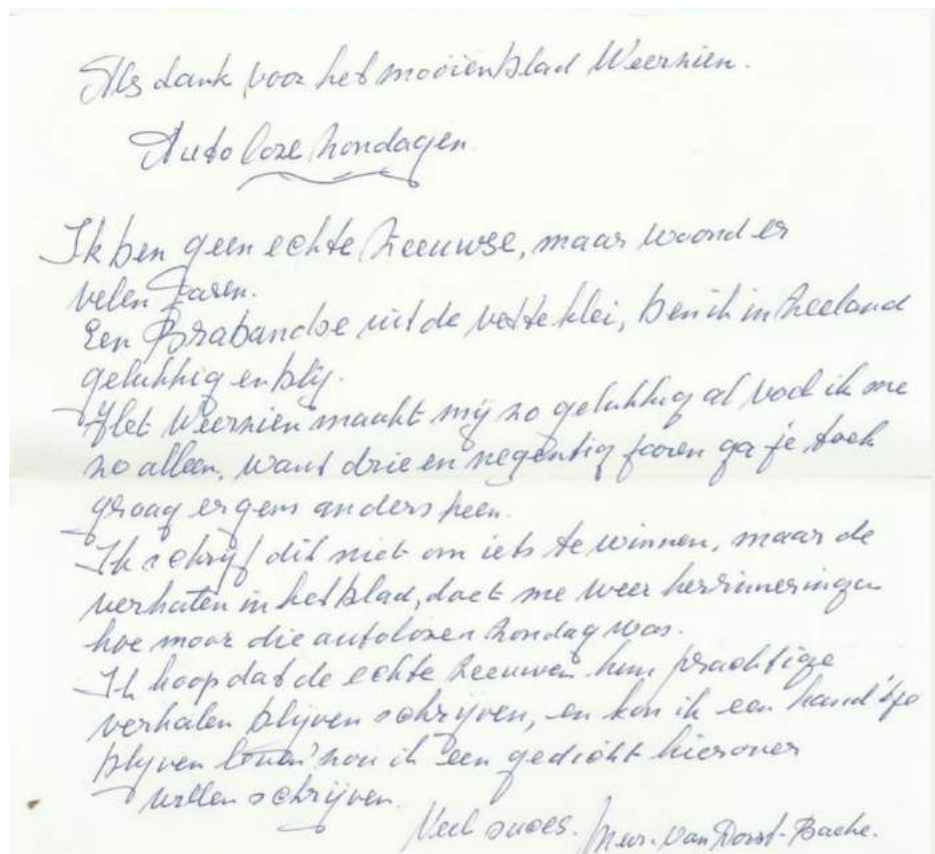 Als dank voor het mooiën blad Weerzien.
Autoloze Zondagen.
Ik ben geen echte Zeeuwse, maar woond er
velen jaren.
Een Brabandse uit de vette klei, ben ik in Zeeland
gelukkig en blij.
Het Weerzien maakt mij zo gelukkig al voel ik me
zo alleen, want drie en negentig jaren ga je toch
graag ergens anders heen.
Ik schrijf dit niet om iets te winnen, maar de
verhalen in het blad, doet me weer herrinneringen
hoe mooi die autolozen Zondag was.
Ik hoop dat de echte Zeeuwen hun prachtige
verhalen blijven schrijven, en kon ik een handtje
blijven zou ik een gedicht hierover
willen schrijven.
Veel succes. Mevr. van Dorst-Bache.